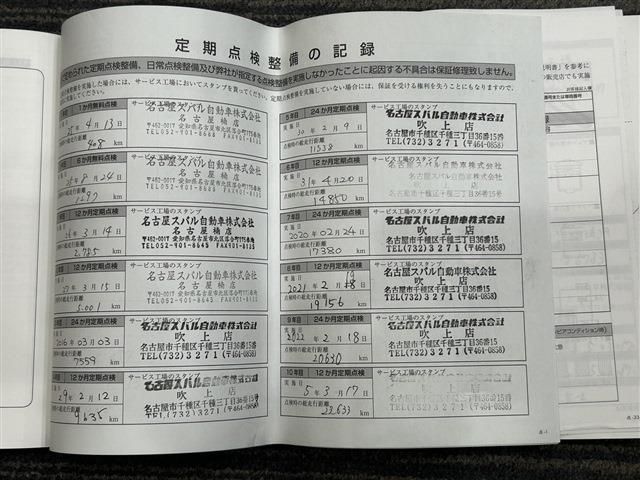 定期点検整備の記録
定められた定期点検整備、日常点検整備及び弊社が指定する点検整備を実施しなかったことに起因する不具合は保証修理致しません。
を実施した場合には、サービス工場においてスタンプを貰ってください。定期点検整備を実施していない場合には、保証を受ける権利を失うことにもなりますので、
1か月無料点検
サービス工場のスタンプ
25年4月13日
名古屋スバル自動車株式会社
名古屋楠店
〒462-0017 愛知県名古屋市北区落合町175番地
TEL052-901-8668 FAX901-8125
408 km
6か月無料点検
サービス工場のスタンプ
25年8月24日
名古屋スバル自動車株式会社
名古屋楠店
1297 km
12か月定期点検
サービス工場のスタンプ
年3月14日
名古屋スバル自動車株式会社
名古屋楠店
〒462-0017 愛知県名古屋市北区落合町175番地
2,785 km
12か月定期点検
サービス工場のスタンプ
27年3月15日
名古屋スバル自動車株式会社
名古屋楠店
5,001 km
24か月定期点検
サービス工場のスタンプ
2016年03月03日
名古屋スバル自動車株式会社
吹上店
名古屋市千種区千種三丁目36番15号
TEL(732)3271(〒464-0858)
7559 km
12か月定期点検
サービス工場のスタンプ
29年2月12日
名古屋スバル自動車株式会社
吹上店
名古屋市千種区千種三丁目36番15号
TEL(732)3271(〒464-0858)
9635 km
5年目 24か月定期点検
サービス工場のスタンプ
実施日 30年2月9日
名古屋スバル自動車株式会社
吹上店
名古屋市千種区千種三丁目36番15号
TEL(732)3271(〒464-0858)
点検時の総走行距離
11538 km
6年目 12か月定期点検
サービス工場のスタンプ
実施日 31年4月20日
名古屋スバル自動車株式会社
吹上店
名古屋市千種区千種三丁目36番15号
TEL(732)3271(〒464-0858)
点検時の総走行距離
14850 km
7年目 24か月定期点検
サービス工場のスタンプ
実施日 2020年02月24日
名古屋スバル自動車株式会社
吹上店
名古屋市千種区千種三丁目36番15
TEL(732)3271(〒464-0858)
点検時の総走行距離
17380 km
8年目 12か月定期点検
サービス工場のスタンプ
実施日 2021年2月
名古屋スバル自動車株式会社
吹上店
名古屋市千種区千種三丁目36番15号
TEL(732)3271(〒464-0858)
点検時の総走行距離
19156 km
9年目 24か月定期点検
サービス工場のスタンプ
実施日 2022年2月18日
名古屋スバル自動車株式会社
吹上店
名古屋市千種区千種三丁目36番15号
TEL(732)3271(〒464-0858)
点検時の総走行距離
20630 km
10年目 12か月定期点検
サービス工場のスタンプ
実施日 5年3月17日
名古屋スバル自動車株式会社
吹上店
名古屋市千種区千種三丁目36番15号
TEL(732)3271(〒464-0858)
点検時の総走行距離
23,633 km